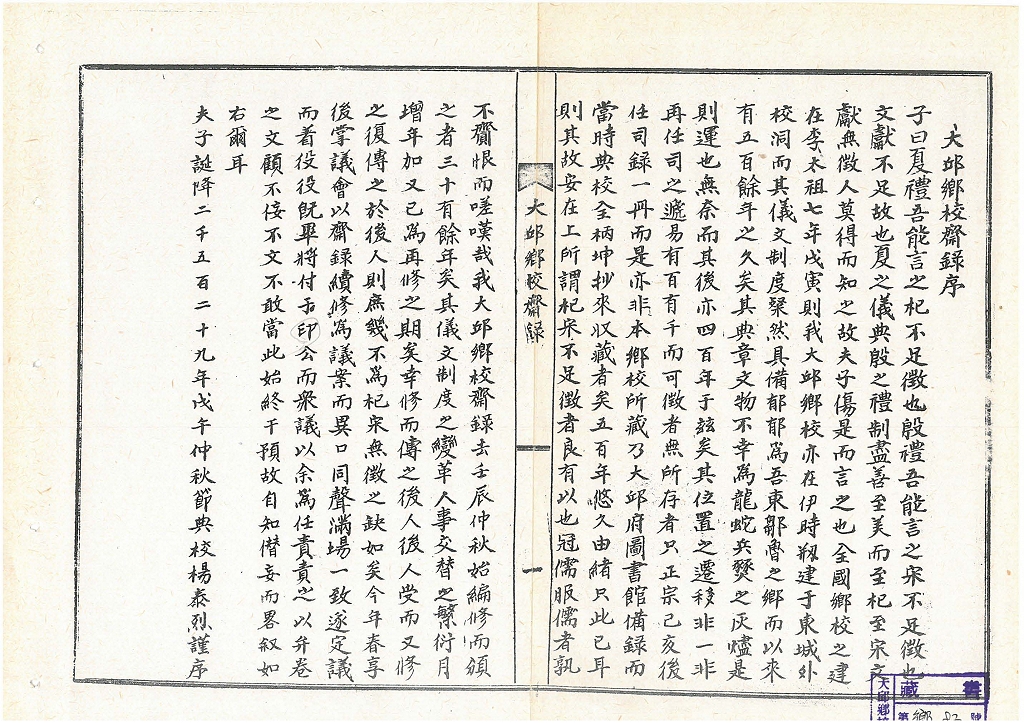 大邱鄉校齋錄序
子曰夏禮吾能言之杞不足徵也殷禮吾能言之宋不足徵也
文獻不足故也夏之儀典殷之禮制盡善至美而至杞至宋文
獻無徵人莫得而知之故夫子傷是而言之也全國鄉校之建
在李太祖七年戊寅則我大邱鄉校亦在伊時剏建于東城外
校洞而其儀文制度粲然具備郁郁爲吾東鄒魯之鄉而以來
有五百餘年之久矣其典章文物不幸爲龍蛇兵燹之灰燼是
則運也無奈而其後亦四百年于玆矣其位置之遷移非一非
再任司之遞易有百有千而可徵者無所存者只正宗己亥後
任司錄一冊而是亦非本鄉校所藏乃大邱府圖書館備錄而
當時典校全柄坤抄來収藏者矣五百年悠久由緒只此已耳
則其故安在上所謂杞宋不足徵者良有以也冠儒服儒者孰
大邱鄉校齋錄
一
不齎恨而嗟嘆哉我大邱鄉校齋錄去壬辰仲秋始編修而頒
之者三十有餘年矣其儀文制度之變革人事交替之繁衍月
增年加又已爲再修之期矣幸修而傳之後人後人受而又修
之復傳之於後人則庶幾不爲杞宋無徵之缺如矣今年春享
後掌議會以齋錄續修爲議案而異口同聲滿場一致遂定議
而着役役旣畢將付于印公而衆議以余爲任責責之以弁卷
之文顧不侫不文不敢當此始終干預故自知僭妄而畧叙如
右爾耳
夫子誕降二千五百二十九年戊午仲秋節典校楊泰烈謹序
藏書
大邱鄉
第 鄉 82 號